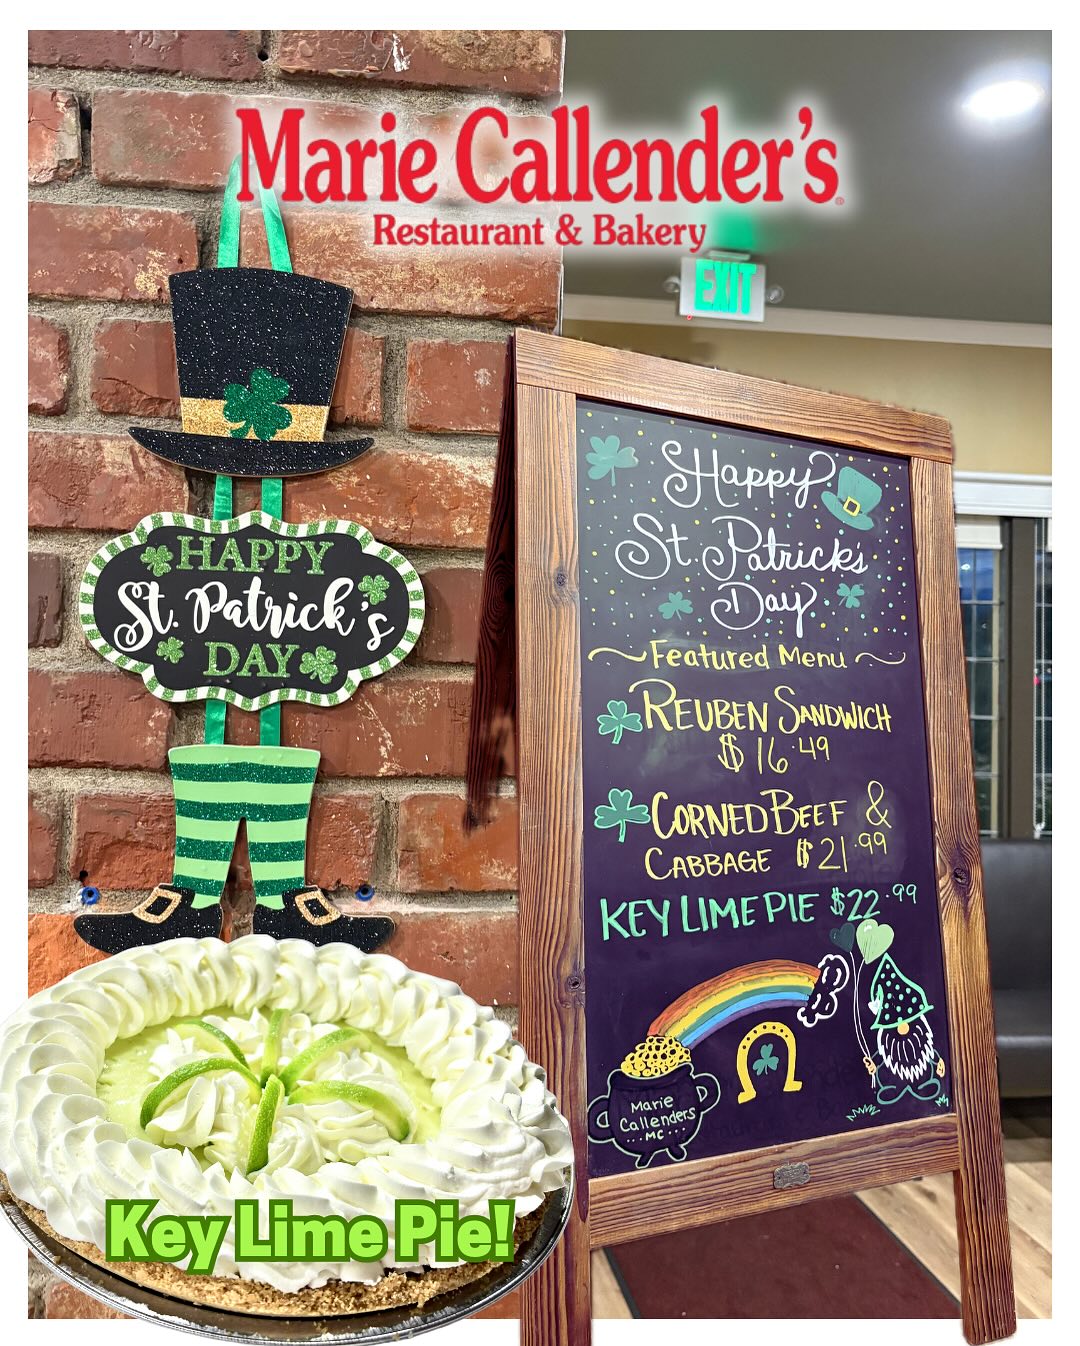 Marie Callender's
Restaurant & Bakery
EXIT
HAPPY
St. Patrick's
DAY
Happy
St. Patricks
Day
Featured Menu
REUBEN SANDWICH
$16.49
CORNED BEEF &
CABBAGE $21.99
KEY LIME PIE $22.99
Marie
Callenders
..MC...
Key Lime Pie!